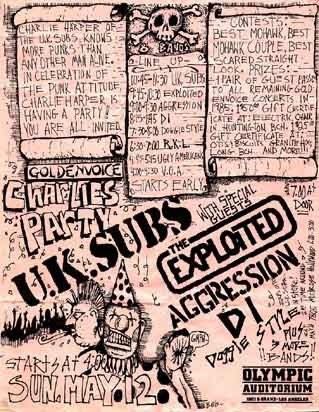 CHARLIE HARPER OF
THE U.K. SUBS, KNOWS
MORE PUNKS THAN
ANY OTHER MAN ALIVE.
IN CELEBRATION OF
THE PUNK ATTITUDE,
CHARLIE HARPER IS
HAVING A PARTY!
YOU ARE ALL INVITED.
8 BANDS
LINE UP
U.K. SUBS
EXPLOITED
AGGRESSION
DI
DOGGIE STYLE
R.K.L.
UGLY AMERICANS
V.O.A.
STARTS EARLY
CONTESTS:
BEST MOHAWK, BEST
MOHAWK COUPLE, BEST
SCARED STRAIGHT
LOOK. PRIZES:
1 PAIR OF GUEST PASSES
TO ALL REMAINING GOLD
ENVOICE CONCERTS IN
GIFT CERTIF
ICATE AT ELECTRIC CHAIR
IN HUNTINGTON BCH,
GIFT CERTIFICATE AT
LONG BCH. AND MORE!!!
GOLDENVOICE
CHARLIES
PARTY
UK. SUBS
WITH SPECIAL
GUESTS
THE
EXPLOITED
AGGRESSION
DI
DOGGIE STYLE
PLUS
3 MORE
BANDS!!
AT
DOOR
STARTS AT 4:00
SUN. MAY. 12.
OLYMPIC
AUDITORIUM
1801 S. GRAND - LOS ANGELES